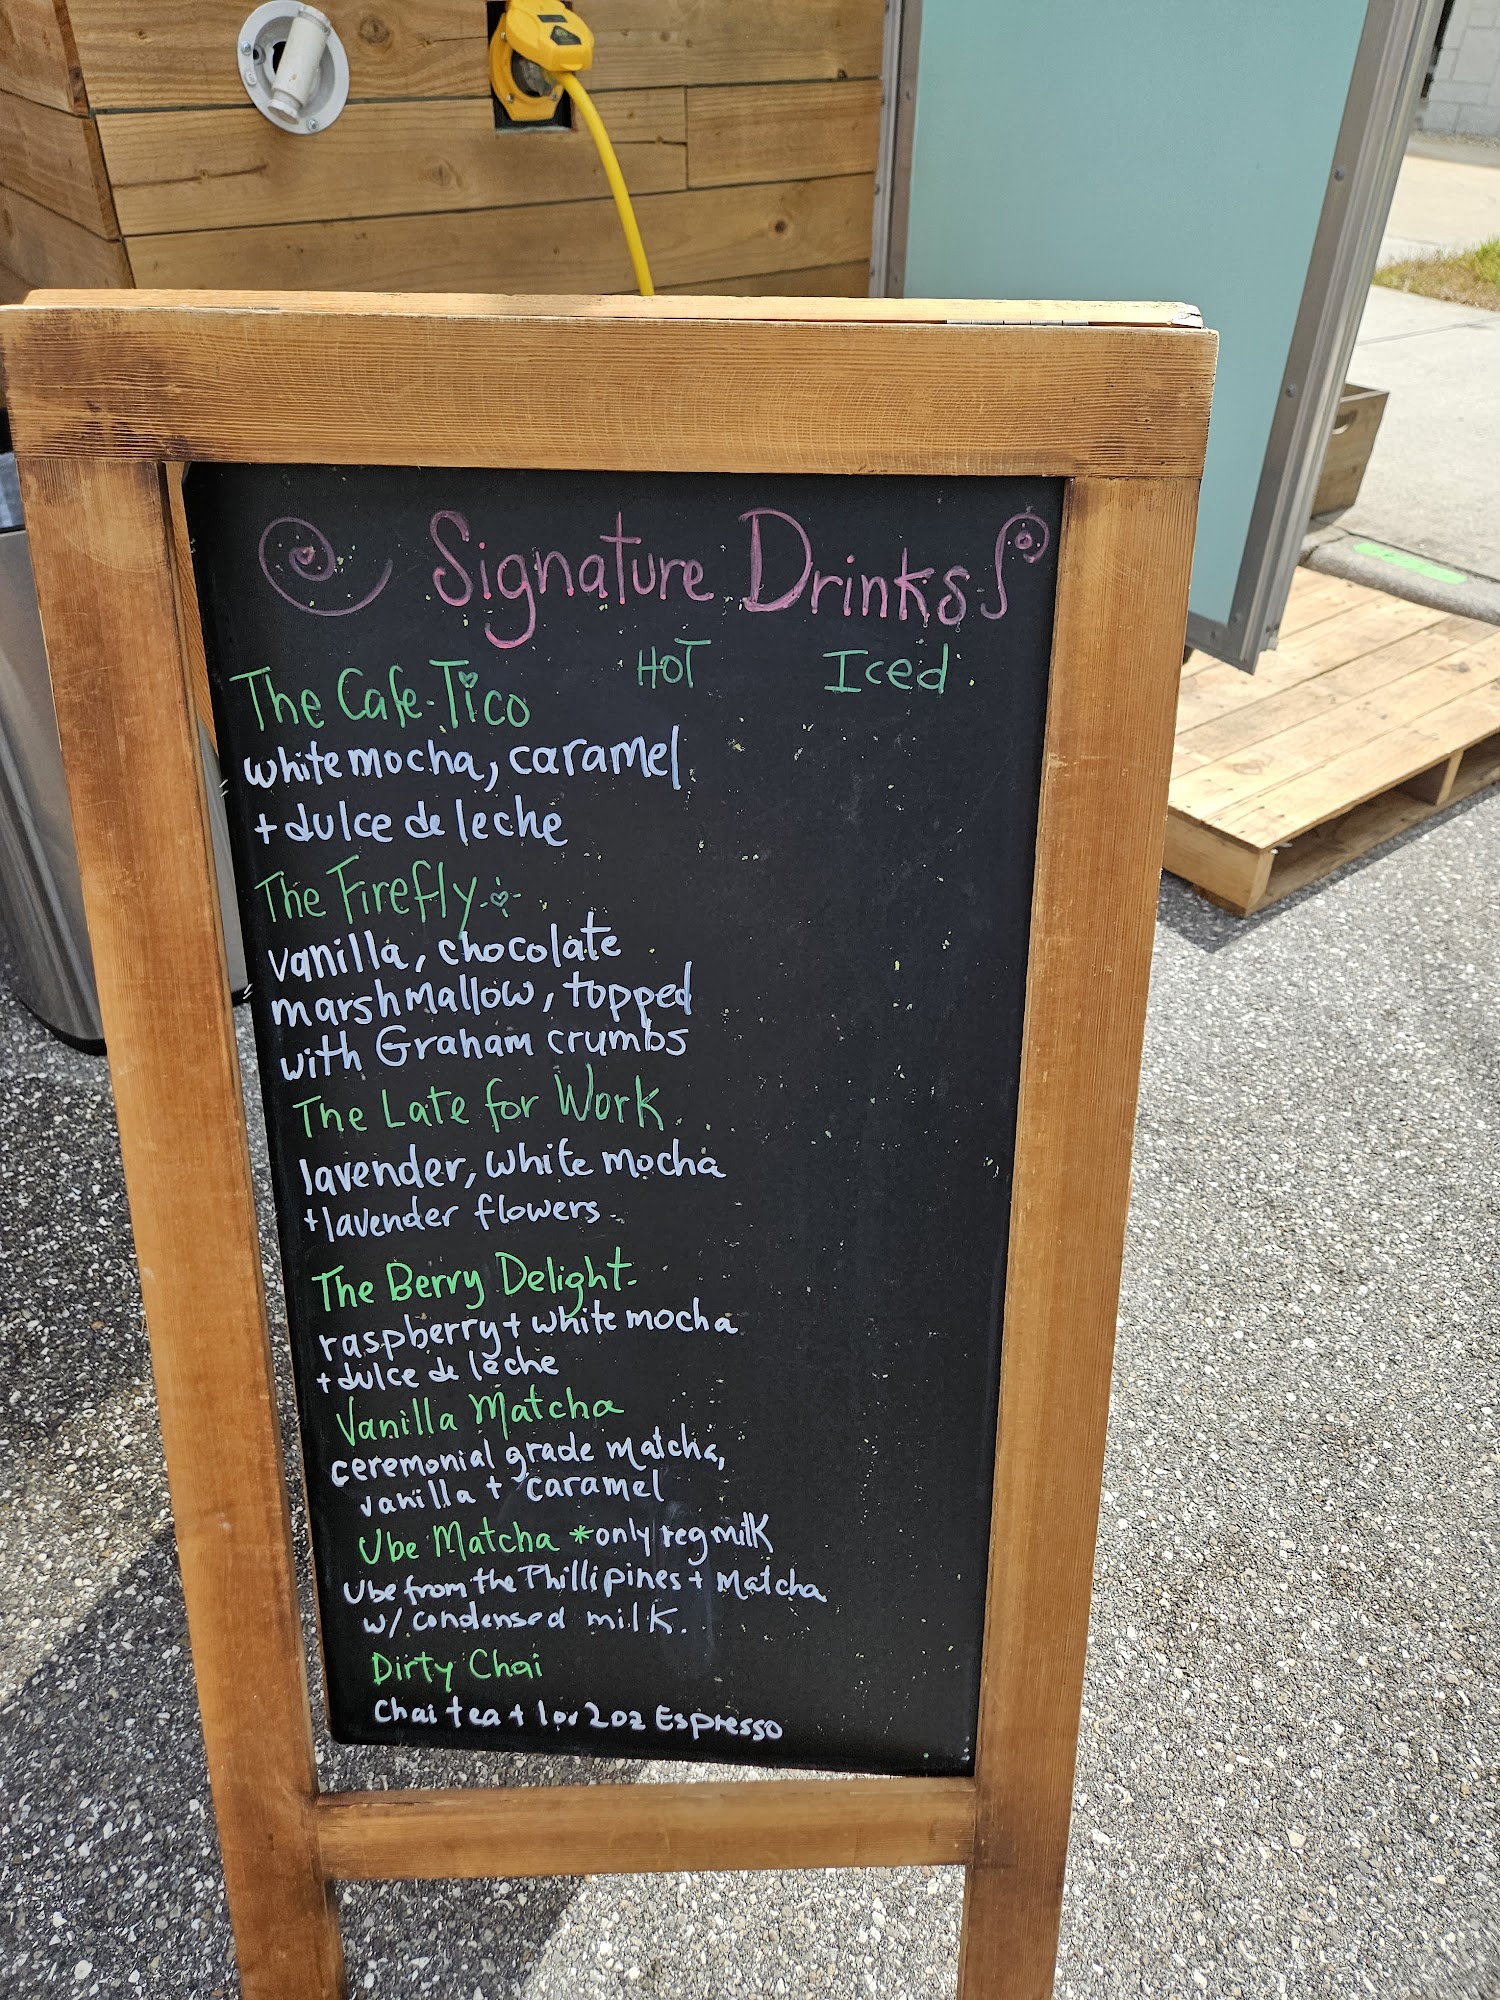 Signature Drinks
HOT Iced
The Cafe-Tico
white mocha, caramel
+ dulce de leche
The Firefly
vanilla, chocolate
marshmallow, topped
with Graham crumbs
The Late for Work
lavender, white mocha
+ lavender flowers
The Berry Delight-
raspberry + white mocha
+ dulce de leche
Vanilla Matcha
ceremonial grade matcha,
vanilla + caramel
Ube Matcha *only reg milk
Ube from the Phillipines + Matcha
w/ condensed milk.
Dirty Chai
Chai tea + 1 or 2oz Espresso